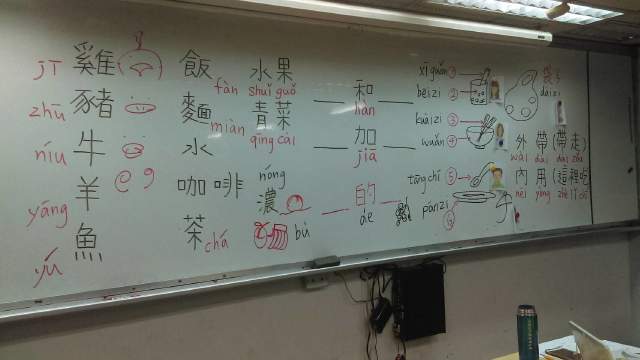 jī 雞
zhū 豬
níu 牛
yáng 羊
yú 魚
飯 fàn
麵 miàn
水
咖啡
茶 chá
水果
shuǐ guǒ
青菜
qīng cài
nóng
濃
bù
和
hàn
加
jiā
的
de
xī guǎn ①
bēi zi ②
kuài zi ③
wǎn ④
tāng chí ⑤
pán zi ⑥
袋子
dài zi
外帶(帶走)
wài dài dài zǒu
內用(這裡吃)
nèi yòng zhè lǐ chī